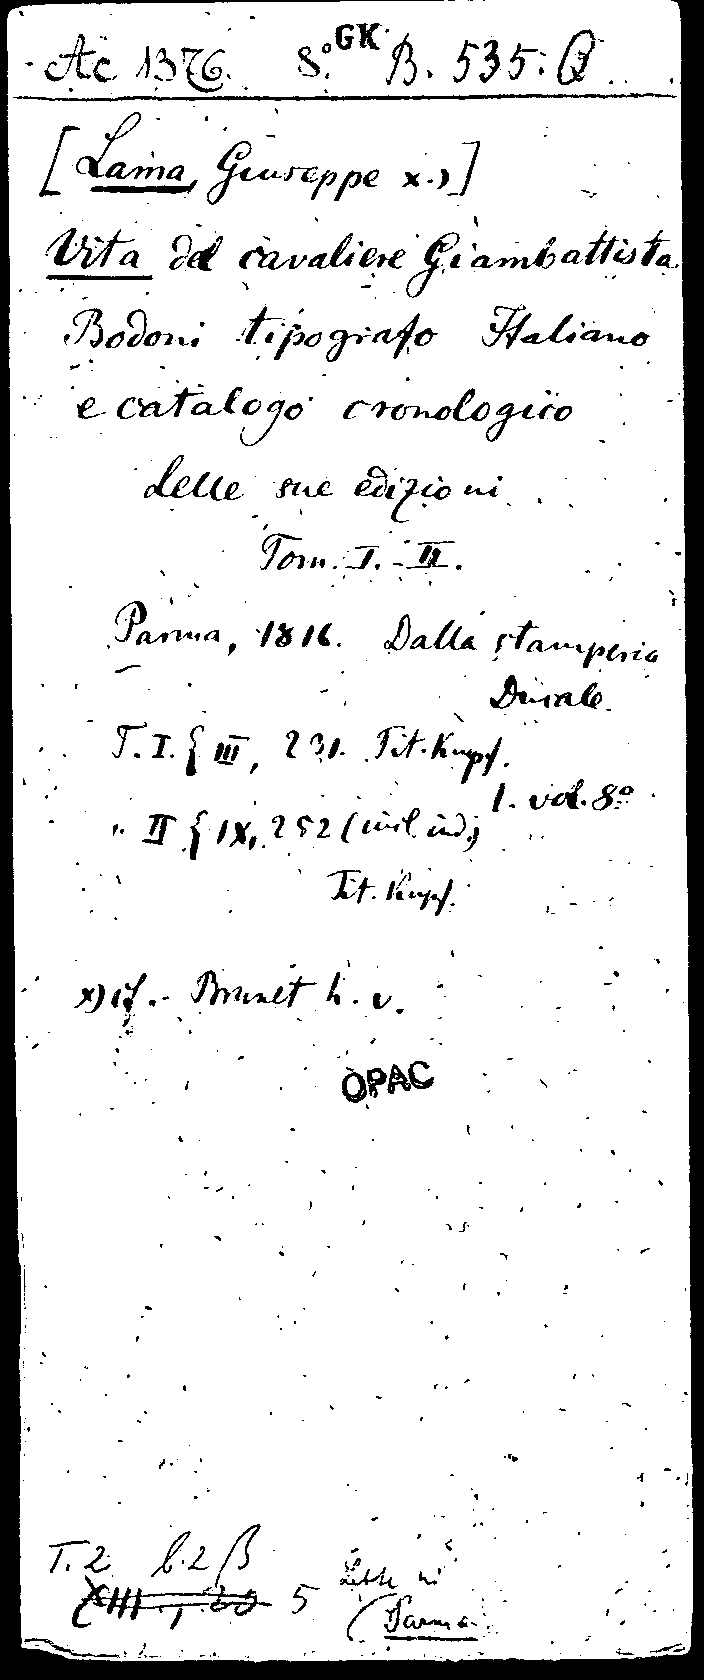 Ac 1376. 8° GK B. 535. Q
[Lama, Giuseppe x.)]
Vita del cavaliere Giambattista
Bodoni tipografo Italiano
e catalogo cronologico
delle sue edizioni
Tom. I. - II.
Parma, 1816. Dalla stamperia
Ducale.
T. I. { III, 231. Tit. Kupf.
1. vol. 8°
" II { IX, 252 (incl. ind.)
Tit. Kupf.
x) cf. Brunet h. v.
OPAC
T. 2 b. 2 β
XIII, 20 5
(Parma